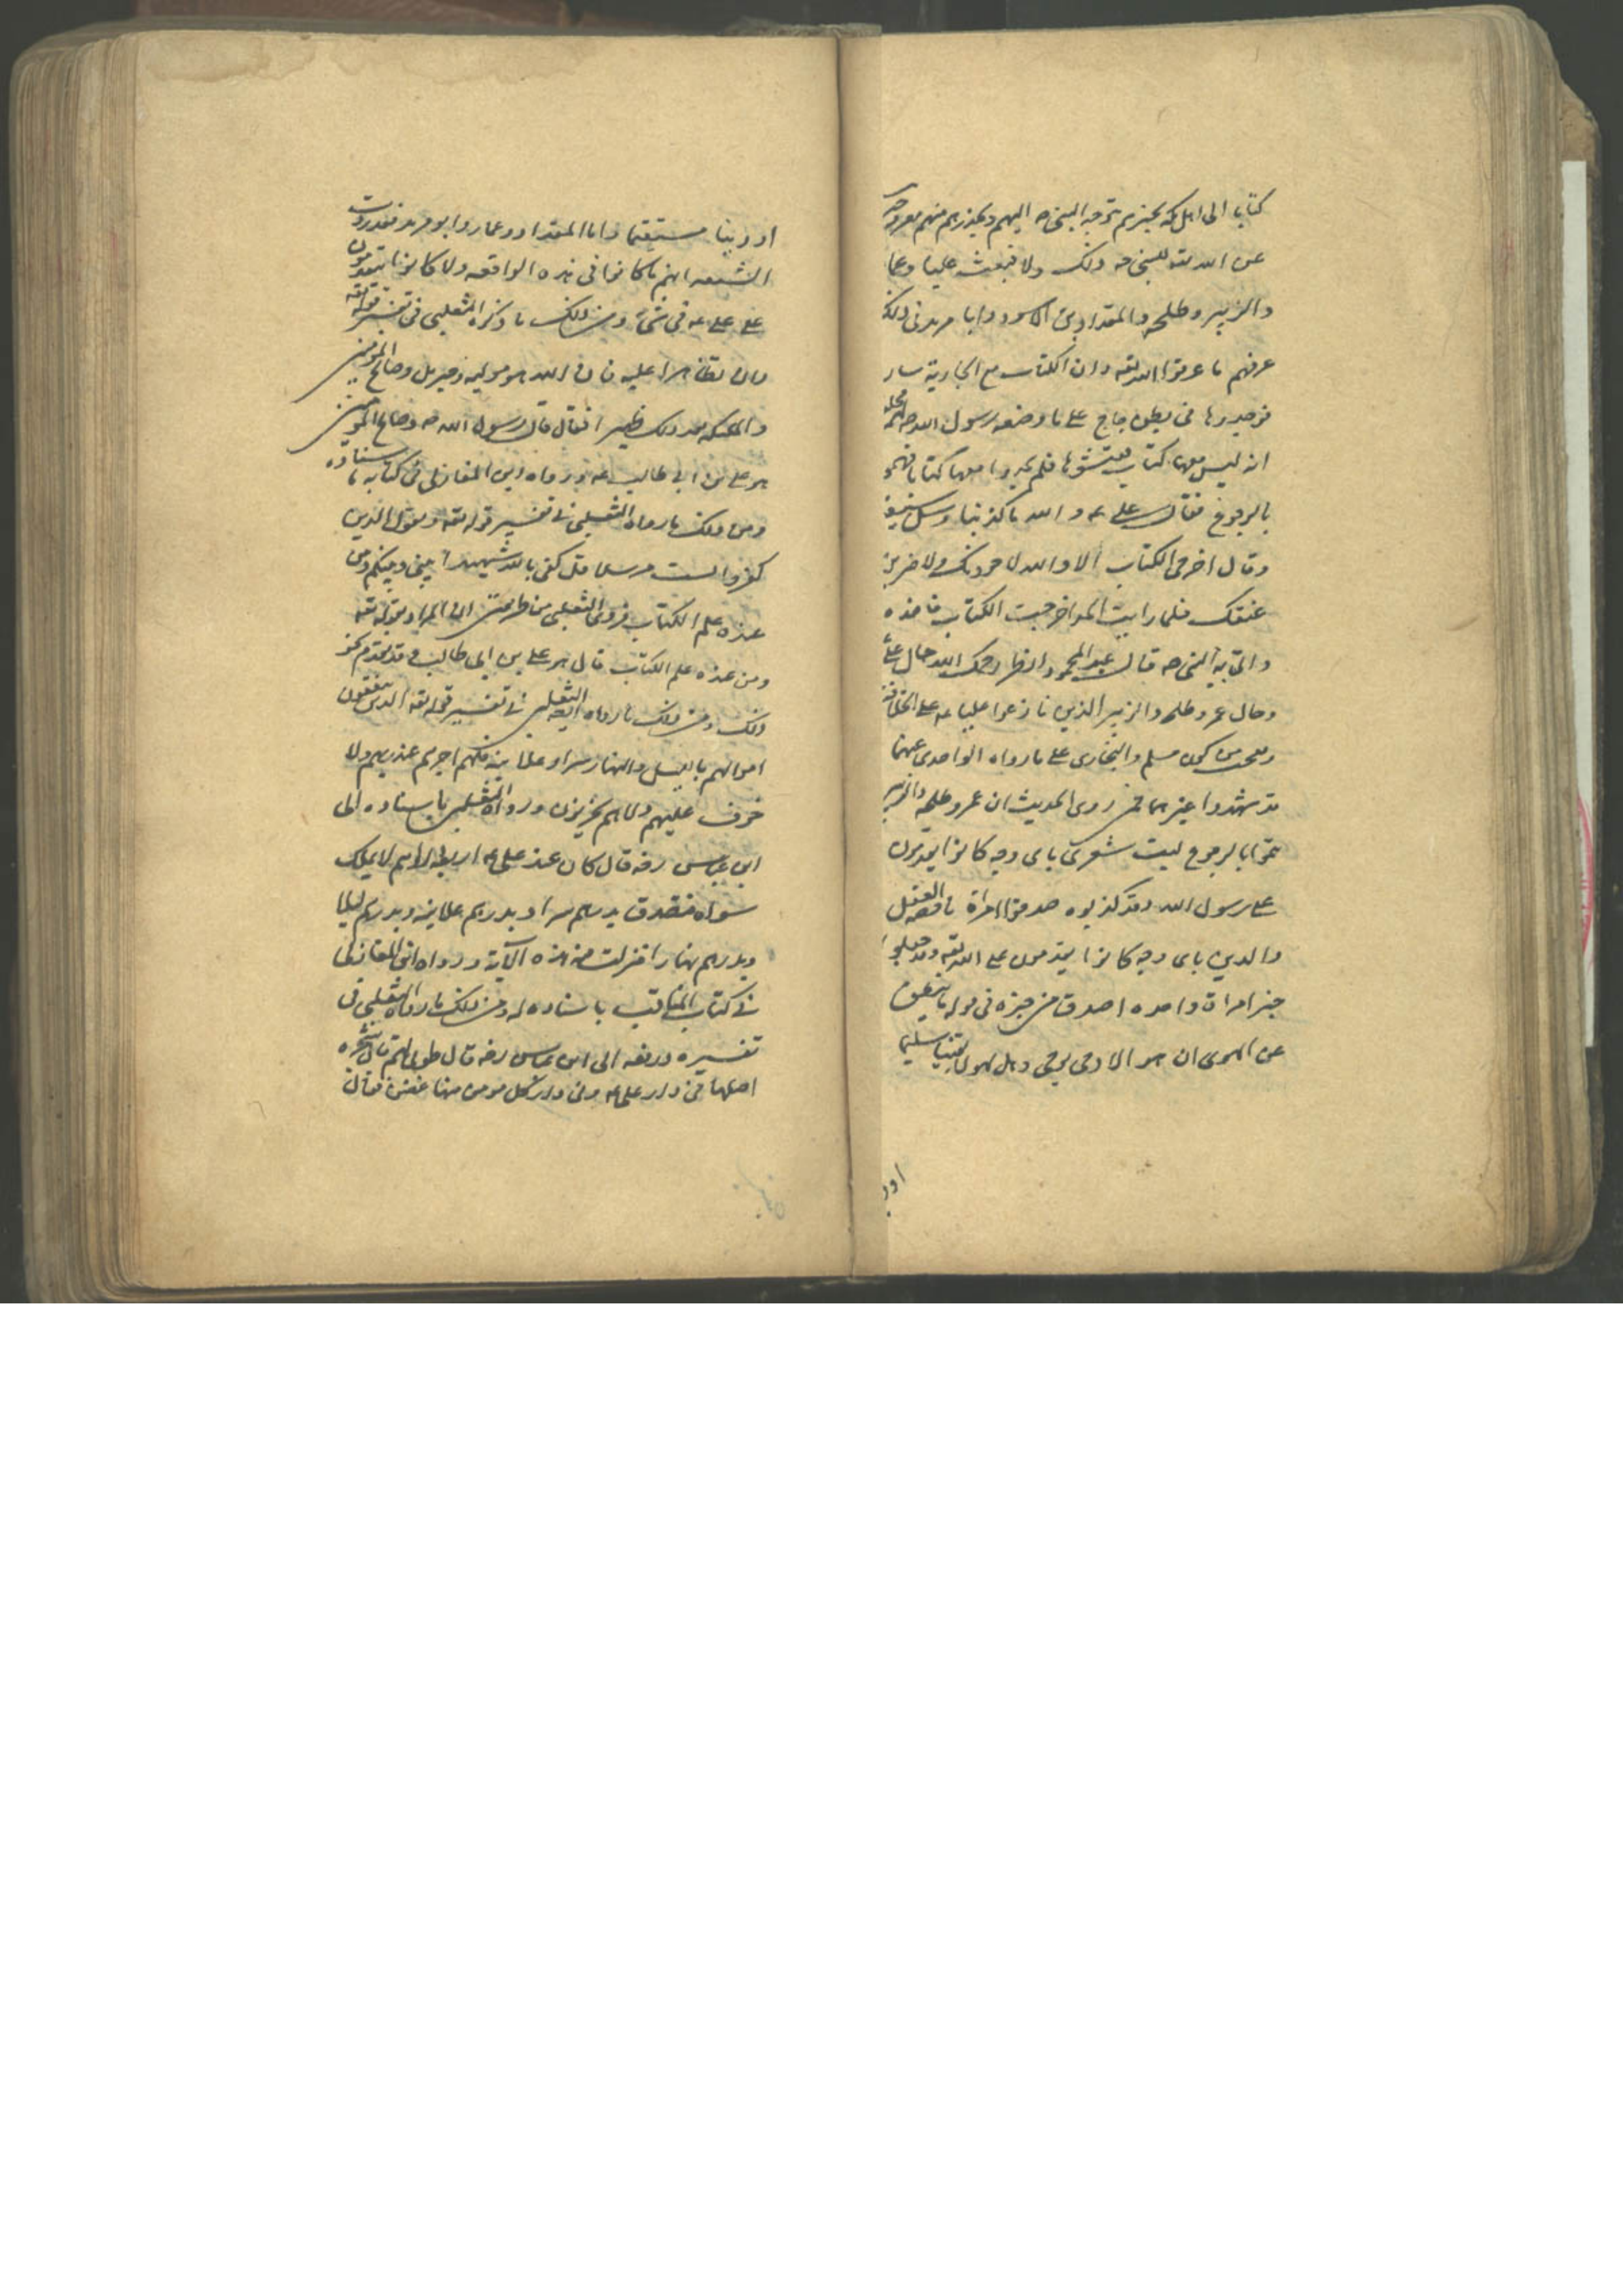 كتابا الى اهل مكة يخبرهم بتوجه النبي صه اليهم ويحذرهم منهم
عن الله تعه للنبي صه ذلك ولا فبعث عليا وعما
والزبير وطلحه والمقداد بن الاسود وابا مرثد في ذلك
عرفهم ما عرفوا الله تعه وان الكتاب مع الجارية سار
فوجدوها في بطن جاج على ما وصفه رسول الله صه
انه ليس معها كتاب ففتشوها فلم يجدوا معها كتابا فهموا
بالرجوع فقال علي عه والله ما كذبنا وسل سيفه
وقال اخرجي الكتاب الا والله لاجردنك ولاضربن
عنقك فلما رايت الجد اخرجت الكتاب فاخذه
واتى به النبي صه قال عبد المحمود انظر رحمك الله حال علي
وحال عمر وطلحه والزبير الذين نازعوا عليا عه على الخلافة
مسلم والبخاري على ما رواه الواحدي عنهما
قد شهدوا غيرهما ممن روى الحديث ان عمر وطلحه والزبير
هموا بالرجوع ليت شعري باي وجه كانوا يقدمون
على رسول الله وقد كذبوه صدقوا امراة ناقصه العقل
والدين باى وجه كانوا يقدمون على الله تعه وقد جعلوا
خبر امراة واحده اصدق من خبره في قوله ما ينطق
عن الهوى ان هو الا وحي يوحى وهل
اورد
او دينا مستقيما واما المقداد وعمار وابو مرثد فقد روت
الشيعه انهم ما كانوا في هذه الواقعه ولا كانوا يتقدمون
على علي عه في شئ ومن ذلك ما ذكره الثعلبي في تفسير قوله تعه
وان تظاهرا عليه فان الله هو موليه وجبريل وصالح المؤمنين
والملئكه بعد ذلك ظهيرا فقال قال رسول الله صه وصالح المؤمنين
هو علي بن ابي طالب عه ورواه ابن المغازلي في كتابه باسناده
ومن ذلك ما رواه الثعلبي في تفسير قوله تعه ويقول الذين
كفروا لست مرسلا قل كفى بالله شهيدا بيني وبينكم ومن
عنده علم الكتاب فروى الثعلبي من طريقين ان المراد بقوله تعه
ومن عنده علم الكتاب قال هو علي بن ابي طالب وقد تقدم نحو
ذلك ومن ذلك ما رواه الثعلبي ايضه في تفسير قوله تعه الذين ينفقون
اموالهم بالليل والنهار سرا وعلانية فلهم اجرهم عند ربهم ولا
خوف عليهم ولا هم يحزنون ورواه الثعلبي باسناده الى
ابن عباس رضه قال كان عند علي عه اربعة دراهم لا يملك
سواه فتصدق بدرهم سرا وبدرهم علانية وبدرهم ليلا
وبدرهم نهارا فنزلت هذه الآية ورواه ابن المغازلي
في كتاب المناقب باسناده له ومن ذلك ما رواه الثعلبي في
تفسيره ورفعه الى ابن عباس رضه قال طوبى لهم قال شجره
اصلها في دار علي عه وفي دار كل مومن منها غصن فقال